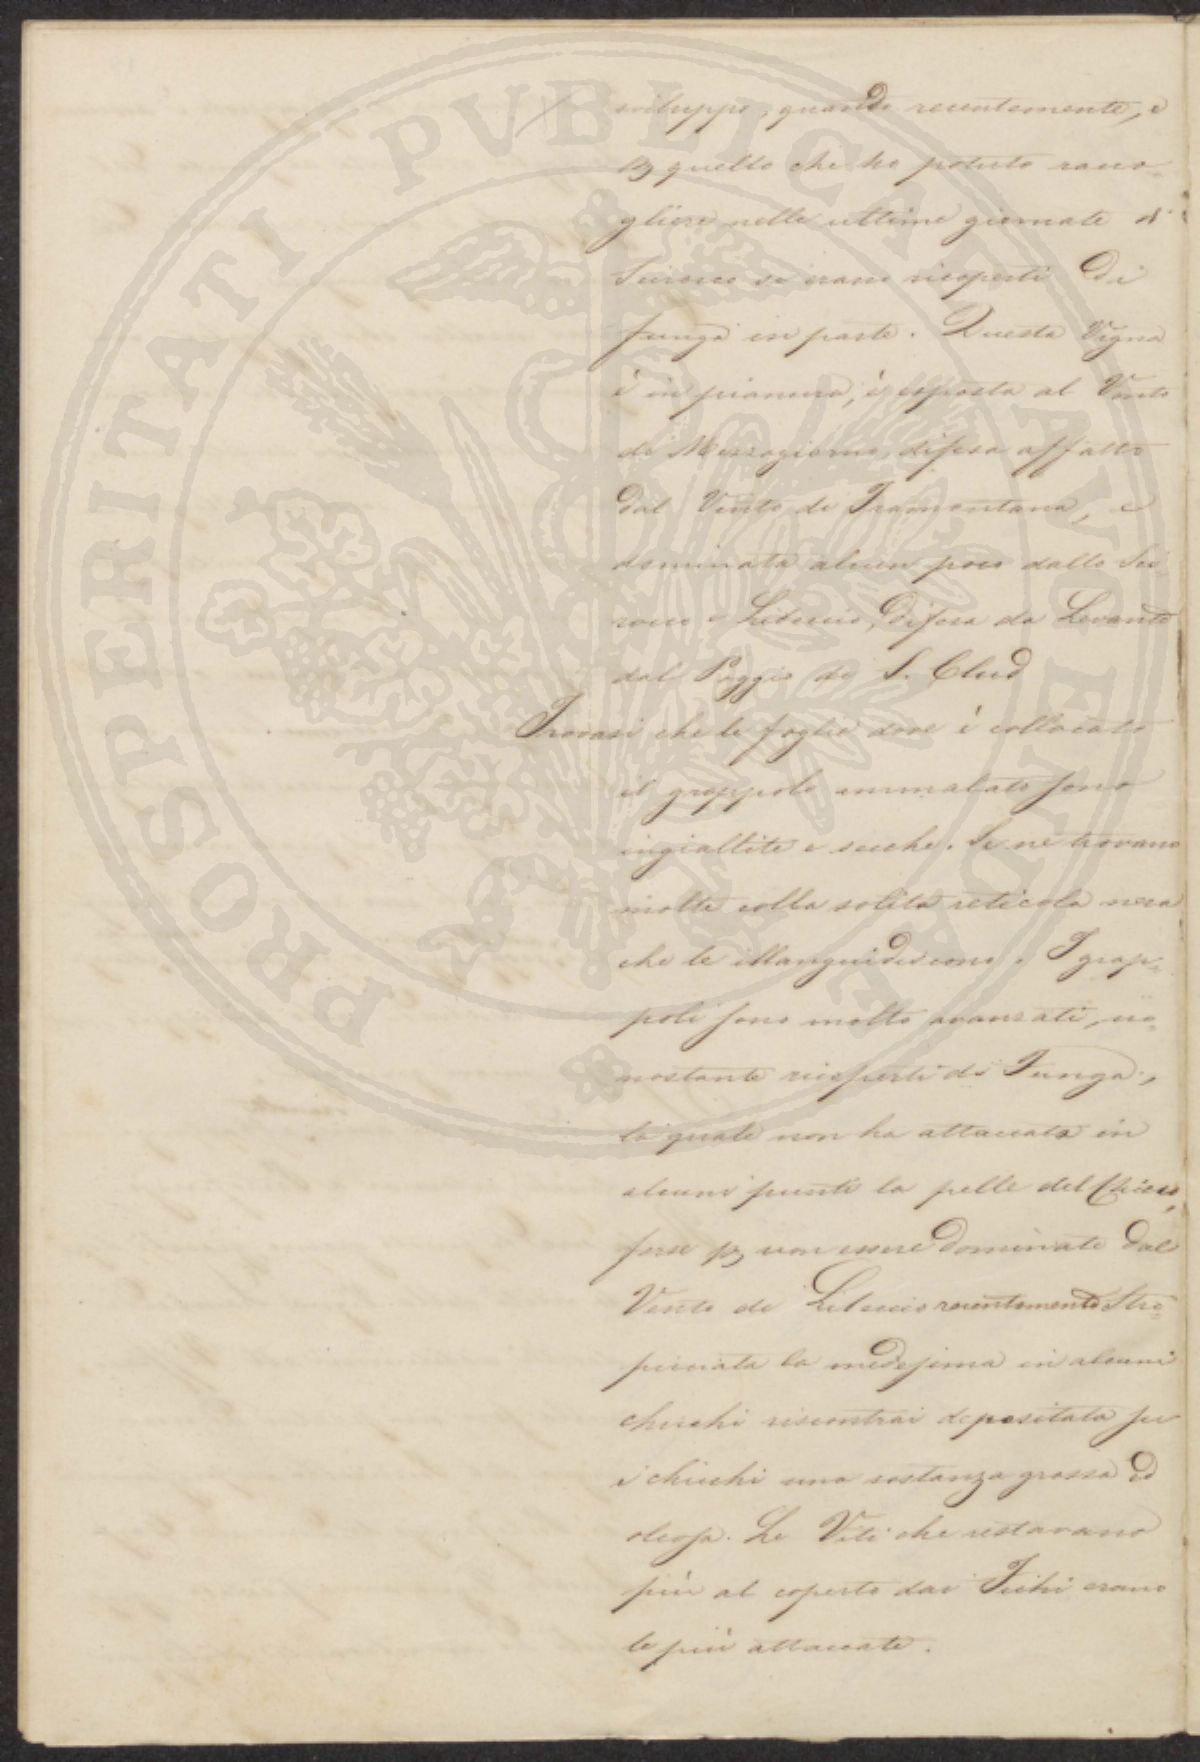 sviluppo, quando recentemente, e
p quello che ho potuto racco-
gliere nelle ultime giornate d'
Scirocco si erano ricoperti di
funga in parte. Questa Vigna
è in pianura, è esposta al Vento
di Mezzogiorno, difesa affatto
dal Vento di Tramontana, e
dominata alcun poco dallo Sci-
rocco e Libeccio, difesa da Levante
dal Poggio di S. Clud
Trovasi che le foglie dove è collocato
il grappolo ammalato sono
ingiallite e secche. Se ne trovano
molte colla solita reticola nera
che le illanguidiscono. I grap-
poli sono molto avanzati, no-
nostante ricoperti di Funga,
la quale non ha attaccata in
alcuni punti la pelle del Chicco,
forse p non essere dominate dal
Vento di Libeccio recentemente Stro-
picciata la medesima in alcuni
chicchi riscontrai depositata su
i chicchi una sostanza grassa ed
oleosa. Le Viti che restavano
più al coperto dai Fichi erano
le più attaccate.
PROSPERITATI PVBLICAE AVGENDAE